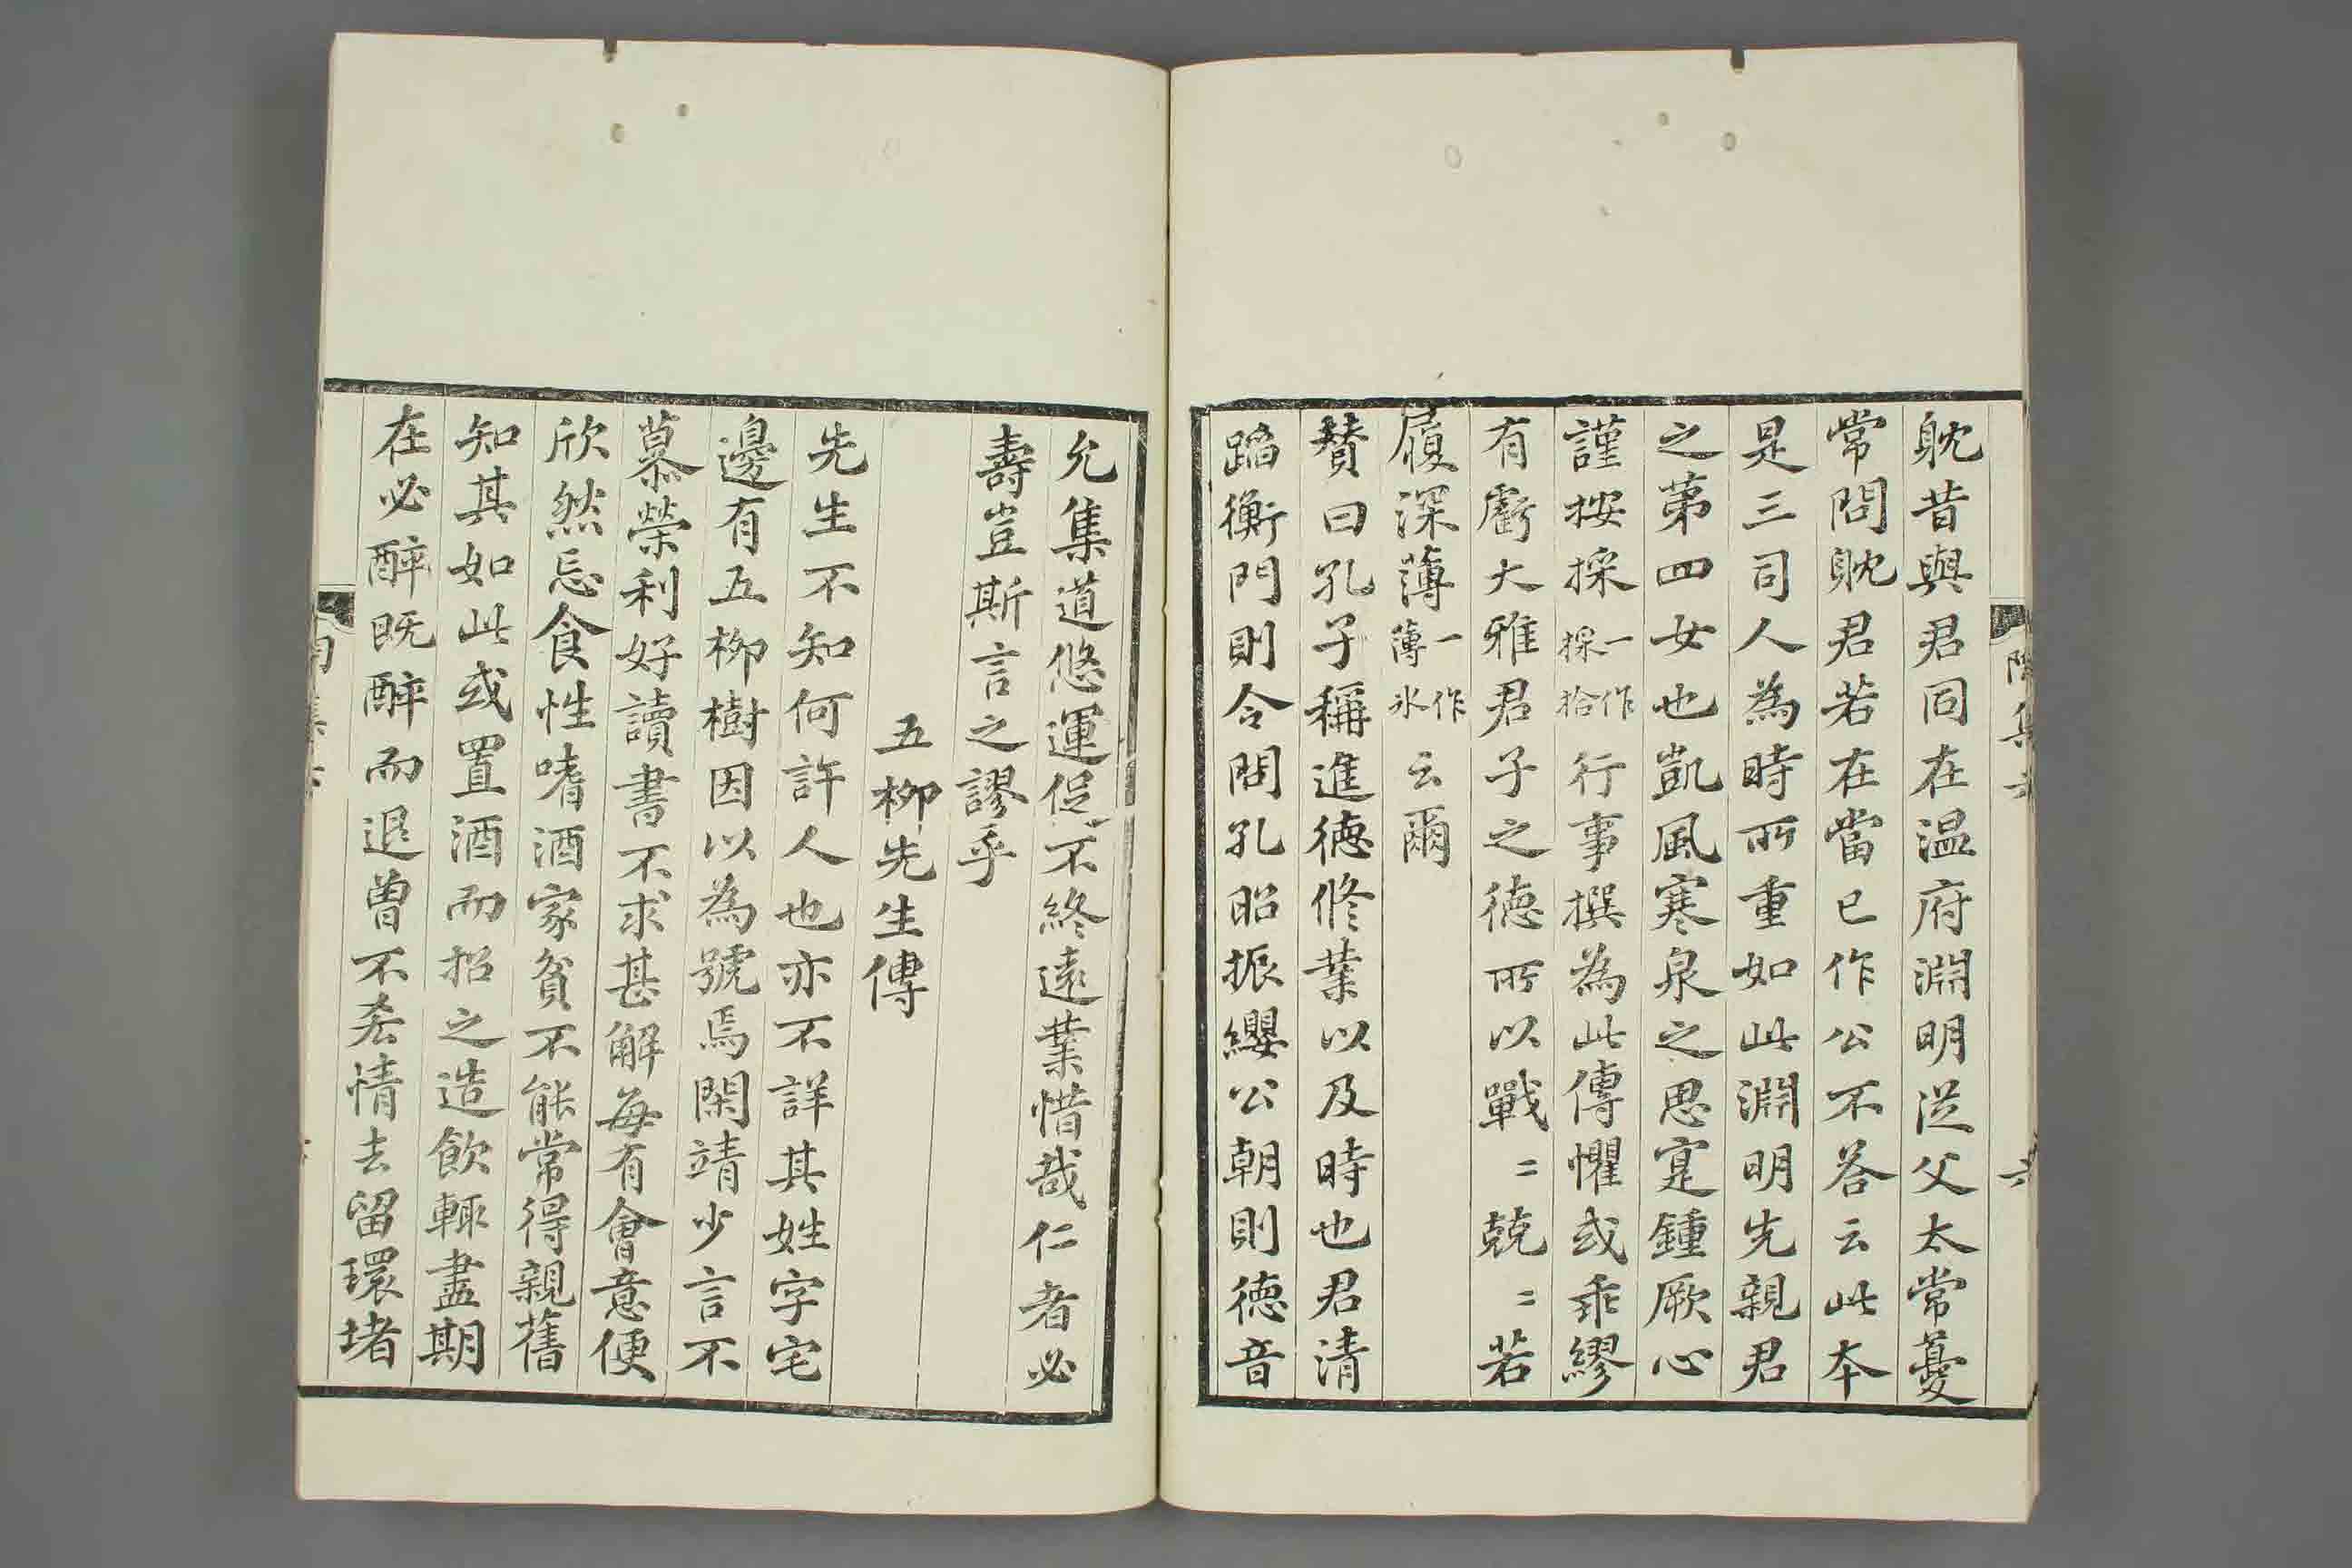 躭昔與君同在温府淵明從父太常夔
常問躭君若在當已作公不荅云此本
是三司人為時所重如此淵明先親君
之第四女也凱風寒泉之思寔鍾厥心
謹按採一作採拾行事撰為此傳懼或乖繆
有虧大雅君子之德所以戰〻兢〻若
履深薄一作薄氷云爾
賛曰孔子稱進德修業以及時也君清
蹈衡門則令問孔昭振纓公朝則德音
允集道悠運促不終遠業惜哉仁者必
壽豈斯言之謬乎
五柳先生傳
先生不知何許人也亦不詳其姓字宅
邊有五柳樹因以為號焉閑靖少言不
慕榮利好讀書不求甚解每有會意便
欣然忘食性嗜酒家貧不能常得親舊
知其如此或置酒而招之造飲輒盡期
在必醉既醉而退曾不吝情去留環堵